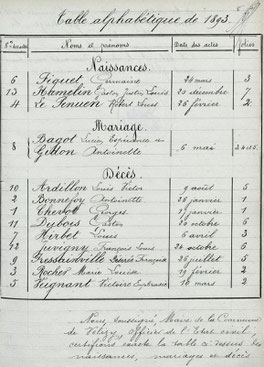 Table alphabétique de 1893.
Noms et prénoms Date des actes folios
Naissances.
6 Figuet Germaine 26 mars 3
13 Hamelin Gaston Louis 25 décembre 7
4 Le Tenuen Robert 26 février 2
Mariage.
8 Bagot Lucien Espérance
Gitton Antoinette 6 mai 3.4 et 5
Décès.
10 Ardillon Louis Victor 9 août 5
2 Bonnefoy Antoinette 28 janvier 1
1 Chevot Georges 17 janvier 1
11 Dubois Gaston 25 octobre 6
7 Hirbet Louis 6 avril 3
12 Juvigny François Louis 24 octobre 6
9 Pressainville Désirée Françoise 26 juillet 5
3 Rocher Marie Louise 19 février 2
5 Seignant Victoire Euphrasie 10 mars 2
Nous soussigné Maire de la Commune
de Velizy, officier de l'Etat civil,
certifions exacte la table ci-dessus des
naissances, mariages et décès